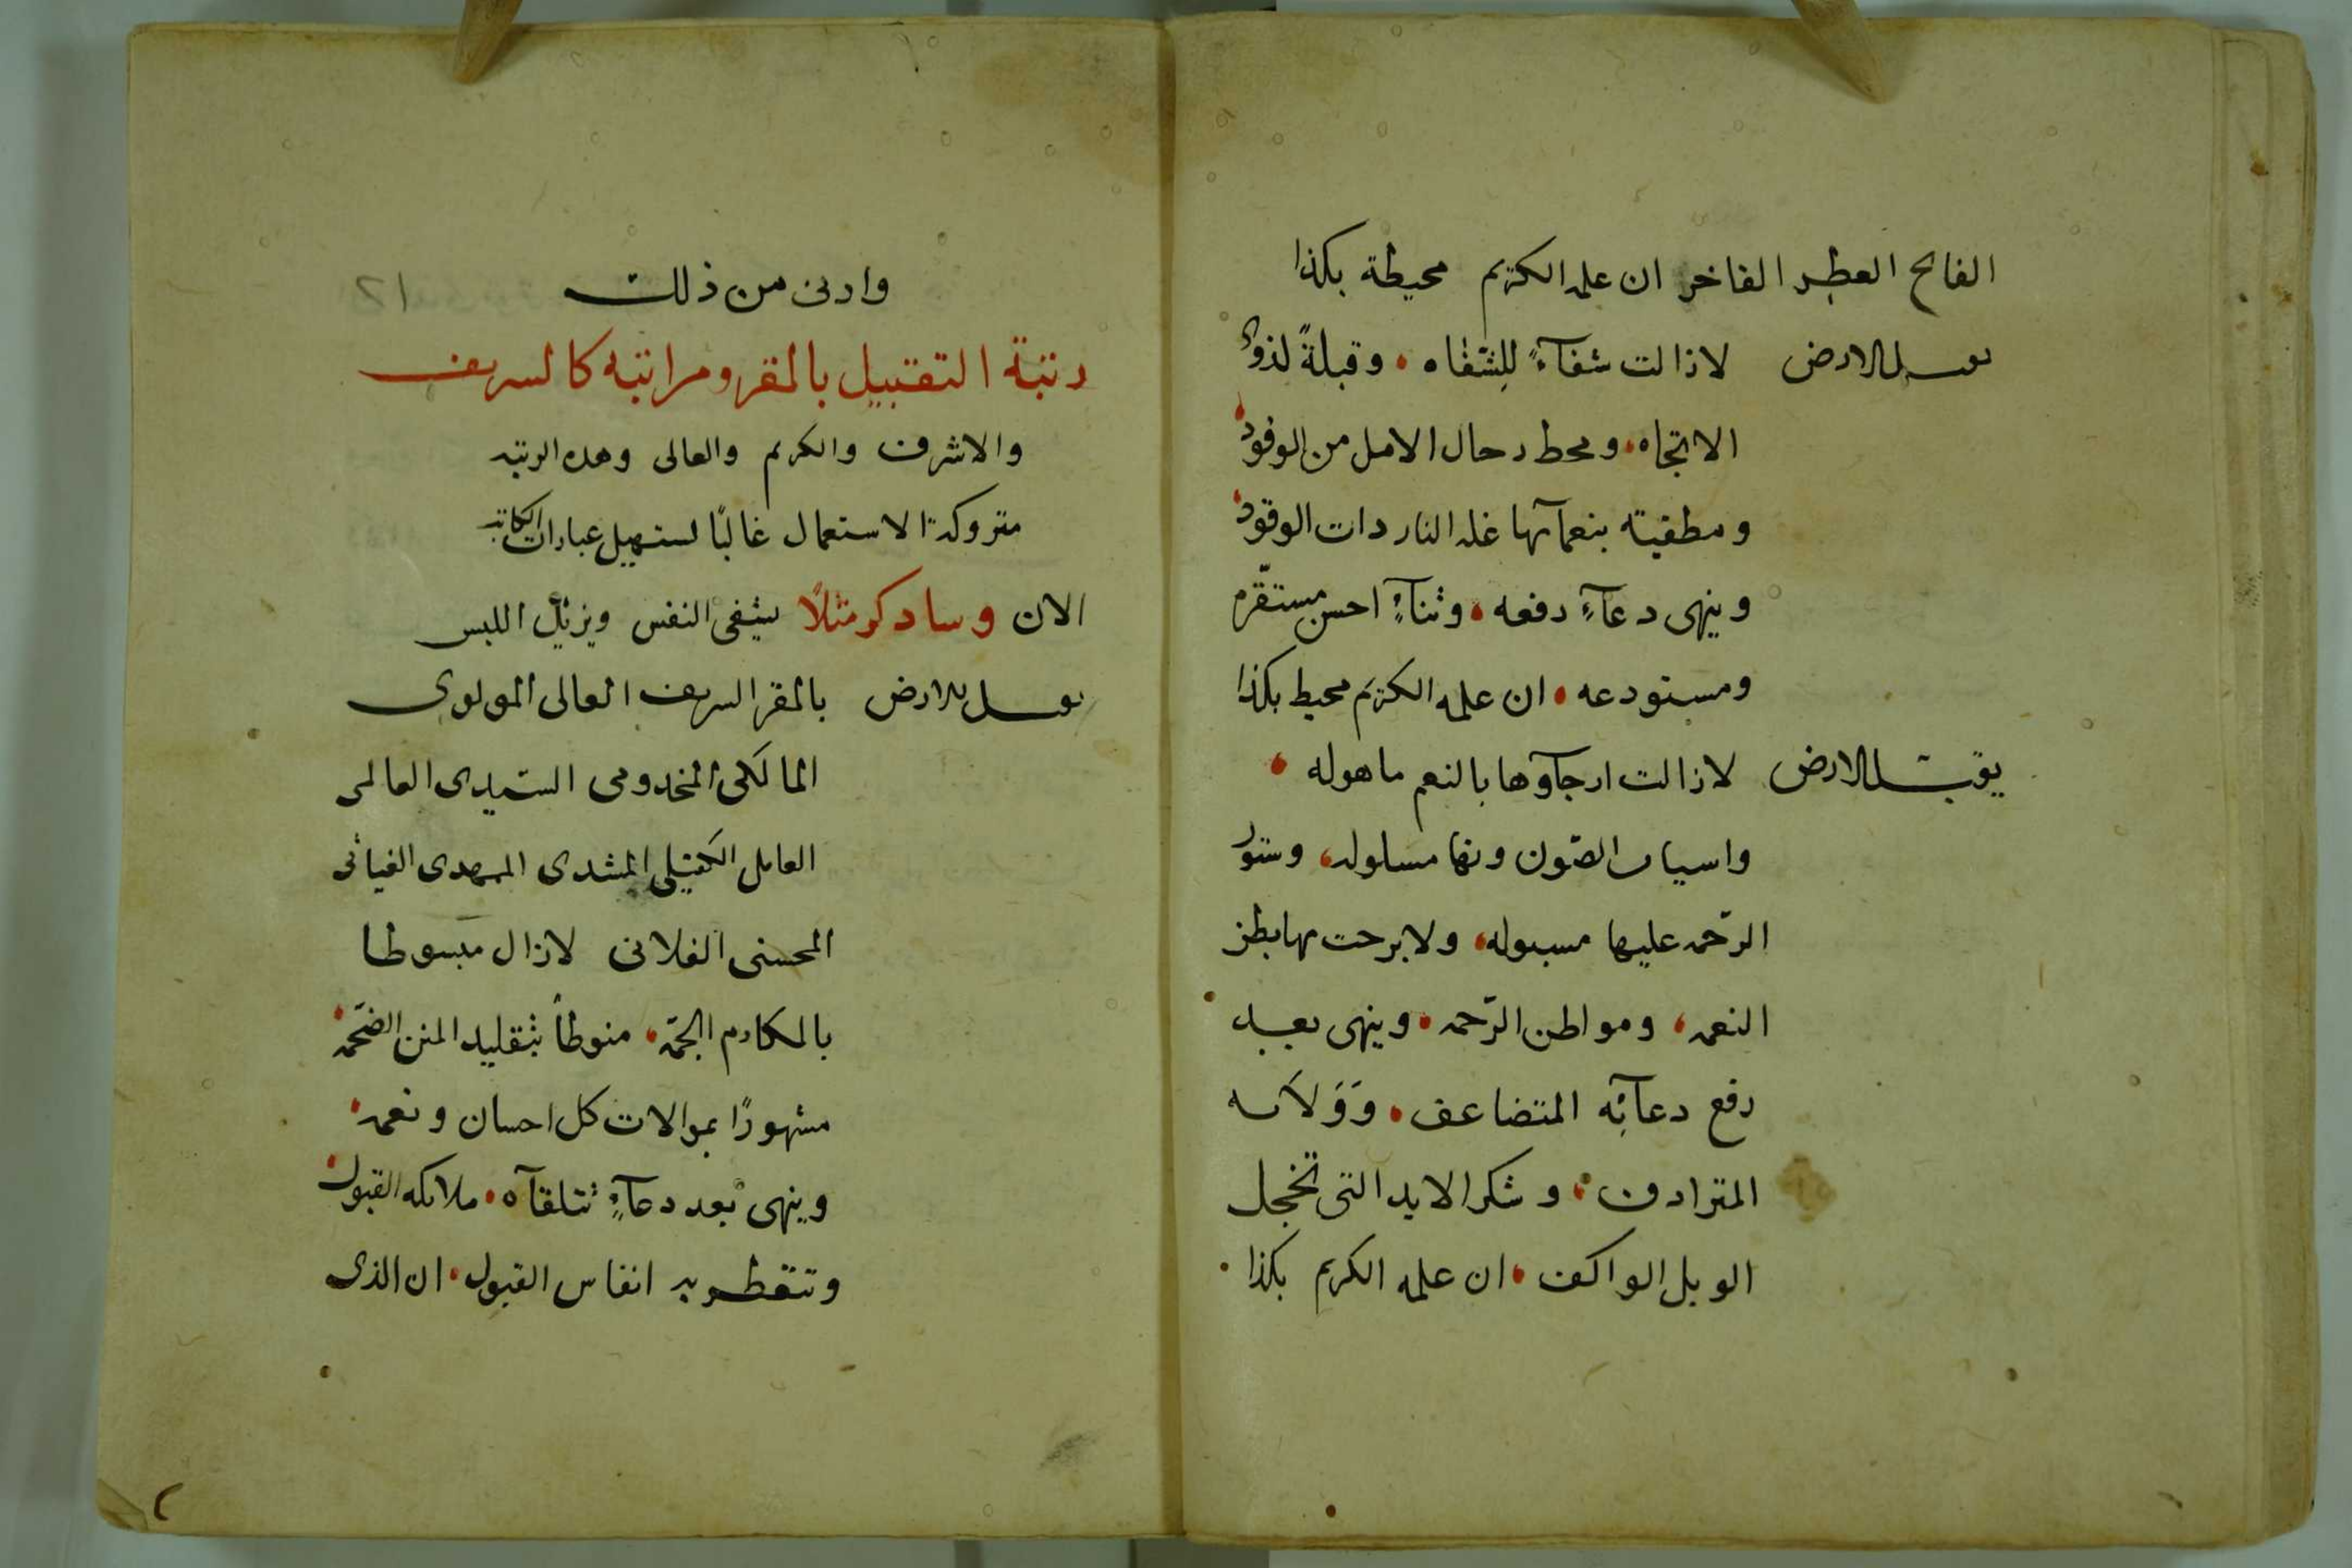 الفائح العطر الفاخر ان علمه الكريم محيطة بكذا
يقبل الارض لازالت شفآءً للشفاه ٠ وقبلةً لذوى
الاتجاه ٠ ومحط رحال الامل من الوفود
ومطفيته بنعمآئها غله النار ذات الوقود
وينهى دعآءٍ رفعه ٠ وثنآءٍ احسن مستقره
ومستودعه ٠ ان علمه الكريم محيط بكذا
يقبل الارض لازالت ارجآؤها بالنعم ماهوله ٠
واسياف الصّون ونها مسلوله، وستور
الرّحمه عليها مسبوله، ولا برحت مهابط
النعمه، ومواطن الرّحمه ٠ وينهى بعد
رفع دعآئِه المتضاعف ٠ وَوَلآئه
المترادف ٠ وشكر الايد التى تخجل
الوبل الواكف ٠ ان علمه الكريم بكذا ٠
وادنى من ذلك
رتبة التقبيل بالمقر ومراتبه كالشريف
والاشرف والكريم والعالى وهذه الرتبه
متروكة الاستعمال غالبًا لتسهيل عبارات الكاتب
الان وساذكر مثلًا يشفى النفس ويزيل اللبس
يقبل الارض بالمقر الشريف العالى المولوى
المالكى المخدومى السّيدى العالمى
العاملى الكفيلى المشدى الممهدى الغياثى
المحسنى الفلانى لازال مبسوطا
بالمكارم الجمّه ٠ منوطاً بتقليد المنن الضخمه
مشهورًا بموالات كل احسان ونعمه
وينهى بعد دعآءٍ تتلقآه ٠ ملائكه القبول
وتتعطر به انفاس القبول ٠ ان الذى